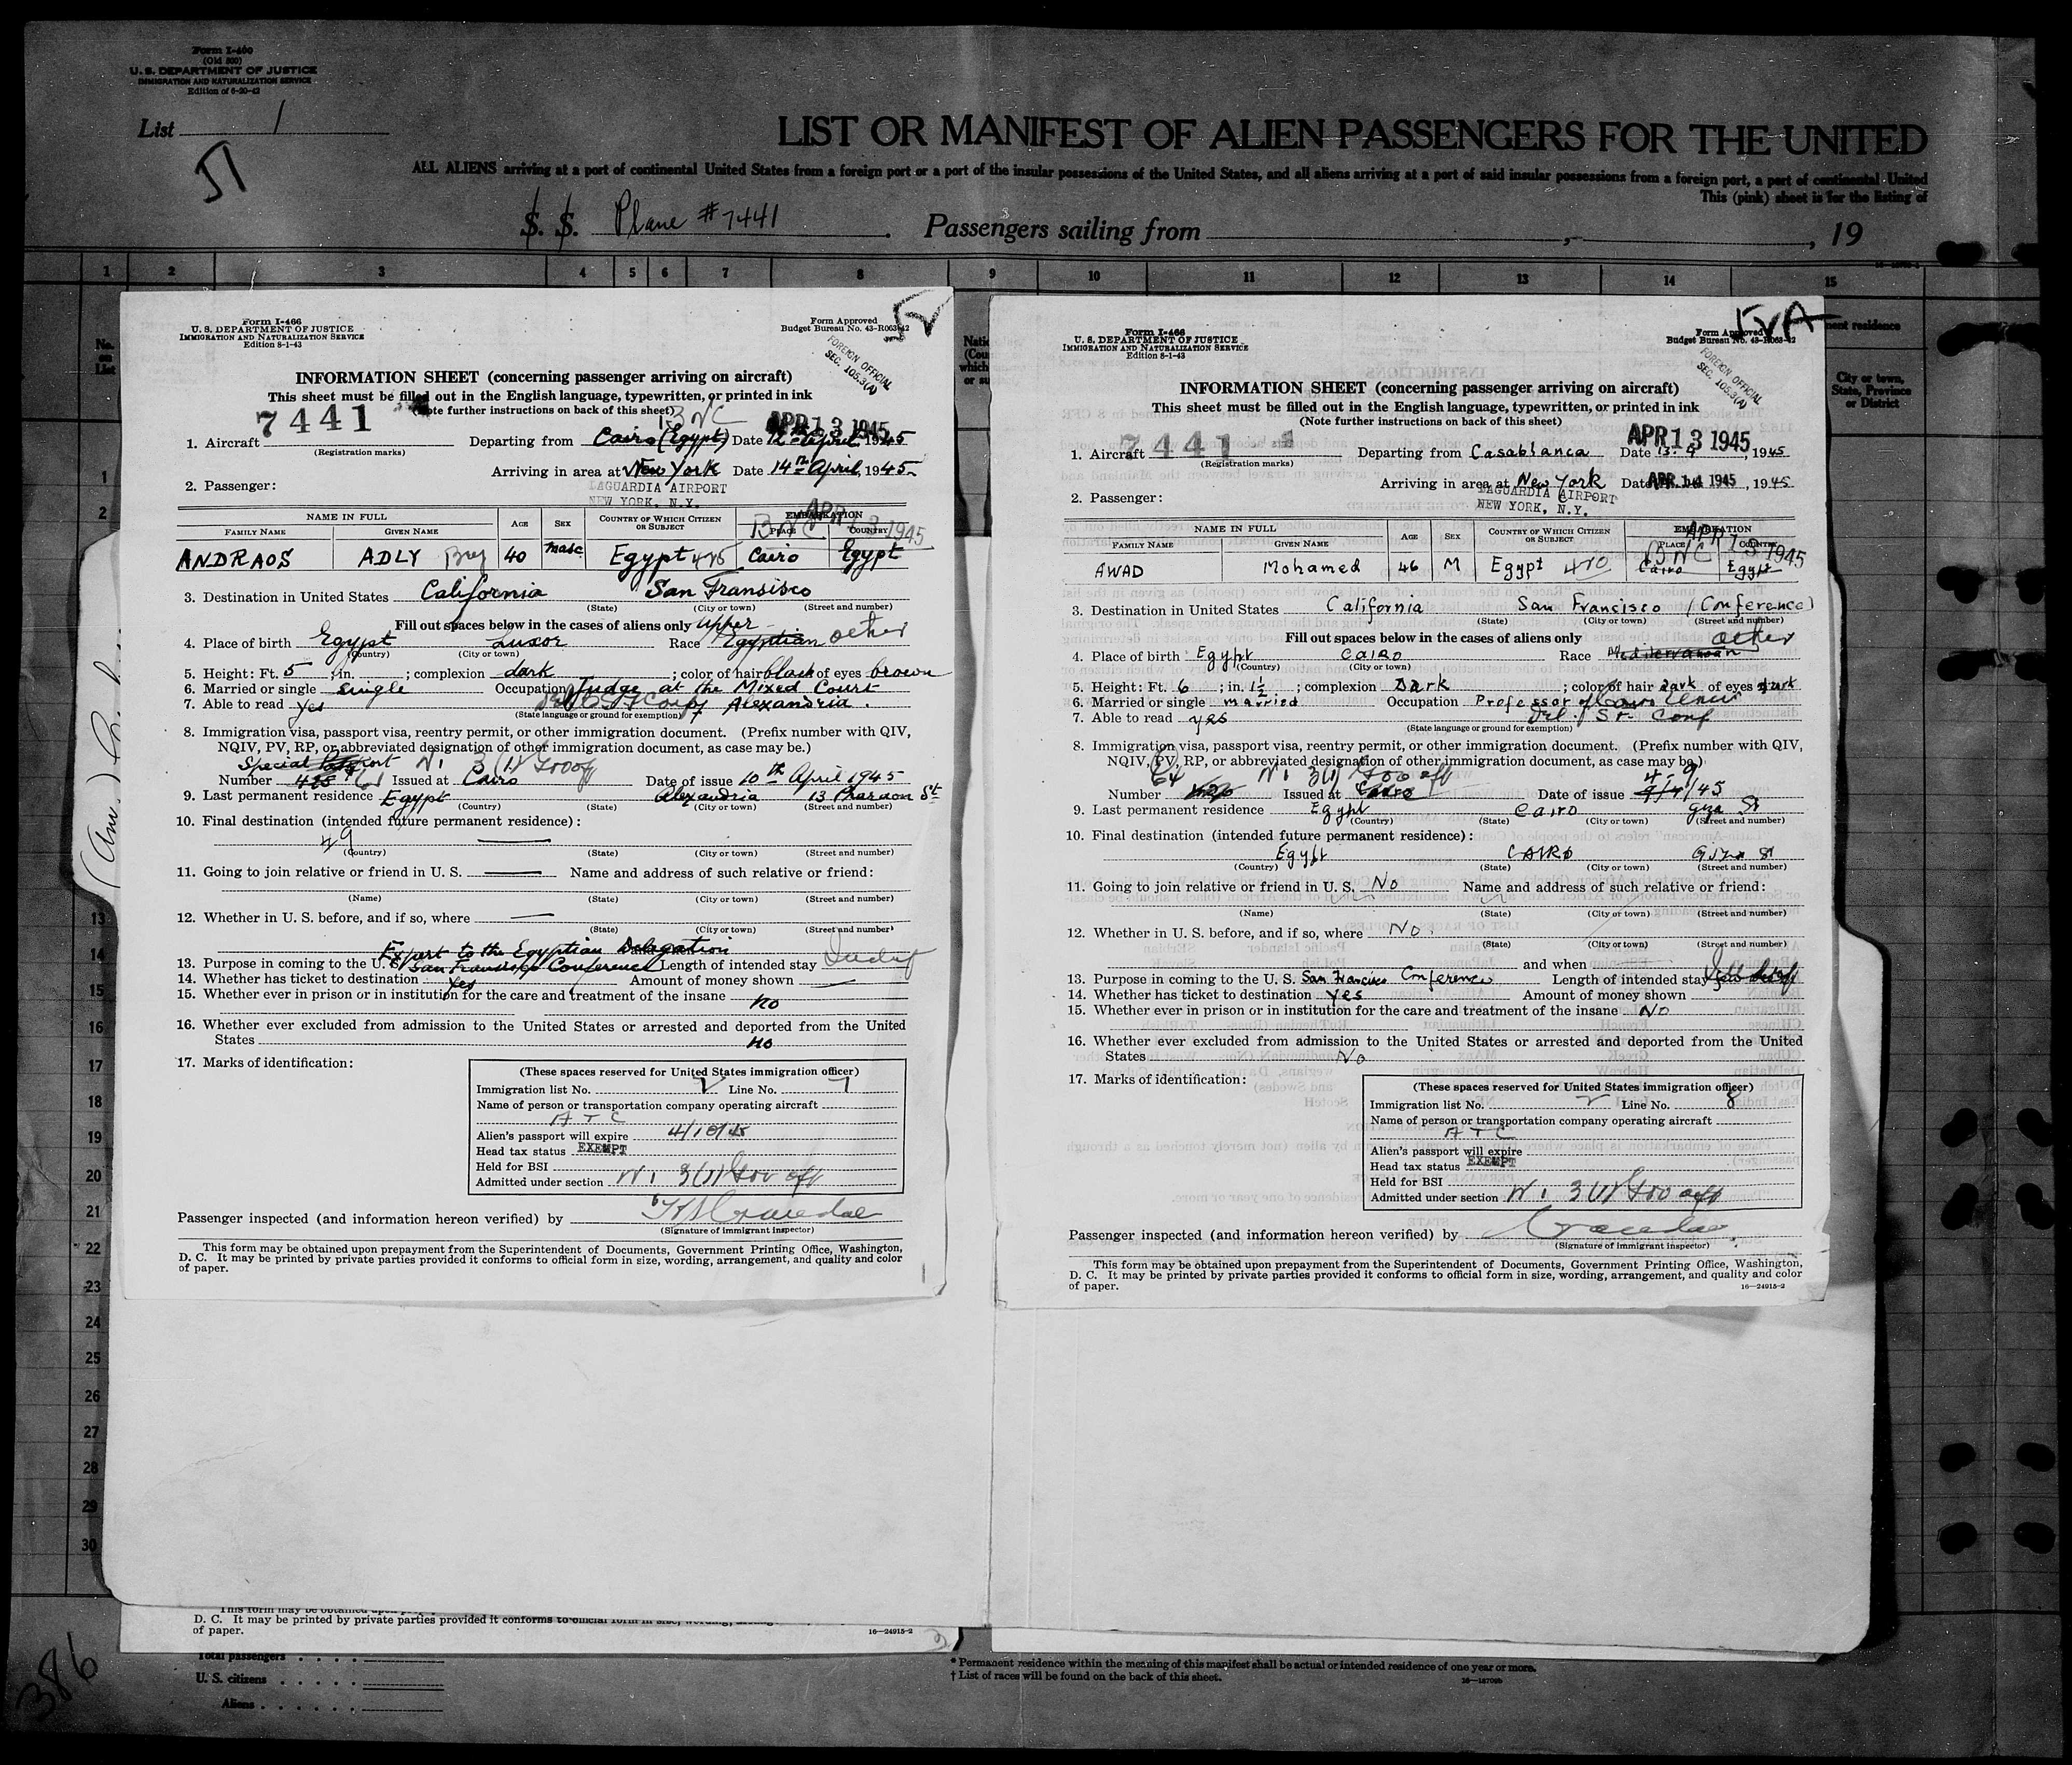 Form I-400
(Old 500)
U. S. DEPARTMENT OF JUSTICE
IMMIGRATION AND NATURALIZATION SERVICE
Edition of 6-20-42
List 1
51
LIST OR MANIFEST OF ALIEN PASSENGERS FOR THE UNITED
ALL ALIENS arriving at a port of continental United States from a foreign port or a port of the insular possessions of the United States, and all aliens arriving at a port of said insular possessions from a foreign port, a port of continental United
This (pink) sheet is for the listing of
S. S. Plane #7441. Passengers sailing from , , 19
1 2 3 4 5 6 7 8 9 10 11 12 13 14 15
No. on List
City or town, State, Province or District
Form I-466
U. S. DEPARTMENT OF JUSTICE
IMMIGRATION AND NATURALIZATION SERVICE
Edition 8-1-43
Form Approved
Budget Bureau No. 43-R063-42
FOREIGN OFFICIAL
SEC. 105.3(A)
INFORMATION SHEET (concerning passenger arriving on aircraft)
This sheet must be filled out in the English language, typewritten, or printed in ink
(Note further instructions on back of this sheet)
BNC APR 13 1945
1. Aircraft 7441 Departing from Cairo (Egypt) Date 12th April 1945
(Registration marks)
Arriving in area at New York Date 14th April, 1945
LAGUARDIA AIRPORT
NEW YORK, N.Y.
2. Passenger:
NAME IN FULL AGE SEX COUNTRY OF WHICH CITIZEN OR SUBJECT EMBARKATION
FAMILY NAME GIVEN NAME PLACE COUNTRY
BNC APR 13 1945
ANDRAOS ADLY Bey 40 masc Egypt Cairo Egypt
3. Destination in United States California San Fransisco
(State) (City or town) (Street and number)
Fill out spaces below in the cases of aliens only
4. Place of birth Egypt Luxor Upper Race Egyptian other
(Country) (City or town)
5. Height: Ft. 5 ; in. ; complexion dark ; color of hair black of eyes brown
6. Married or single single Occupation Judge at the Mixed Court
7. Able to read yes of Alexandria.
(State language or ground for exemption)
8. Immigration visa, passport visa, reentry permit, or other immigration document. (Prefix number with QIV,
NQIV, PV, RP, or abbreviated designation of other immigration document, as case may be.)
Special Passport
Number 61 Issued at Cairo Date of issue 10th April 1945
9. Last permanent residence Egypt Alexandria 13 Pharaon St
(Country) (State) (City or town) (Street and number)
10. Final destination (intended future permanent residence):
49
(Country) (State) (City or town) (Street and number)
11. Going to join relative or friend in U. S. — Name and address of such relative or friend:
(Name) (State) (City or town) (Street and number)
12. Whether in U. S. before, and if so, where —
(State) (City or town) (Street and number)
Expert to the Egyptian Delegation
13. Purpose in coming to the U. S. San Francisco Conference Length of intended stay
14. Whether has ticket to destination Yes Amount of money shown —
15. Whether ever in prison or in institution for the care and treatment of the insane no
16. Whether ever excluded from admission to the United States or arrested and deported from the United
States no
17. Marks of identification:
(These spaces reserved for United States immigration officer)
Immigration list No. Line No. 7
Name of person or transportation company operating aircraft
A T C
Alien's passport will expire
Head tax status EXEMPT
Held for BSI
Admitted under section
Passenger inspected (and information hereon verified) by
(Signature of immigrant inspector)
This form may be obtained upon prepayment from the Superintendent of Documents, Government Printing Office, Washington,
D. C. It may be printed by private parties provided it conforms to official form in size, wording, arrangement, and quality and color
of paper.
Form I-466
U. S. DEPARTMENT OF JUSTICE
IMMIGRATION AND NATURALIZATION SERVICE
Edition 8-1-43
Form Approved
Budget Bureau No. 43-R063-42
FOREIGN OFFICIAL
SEC. 105.3(A)
INFORMATION SHEET (concerning passenger arriving on aircraft)
This sheet must be filled out in the English language, typewritten, or printed in ink
(Note further instructions on back of this sheet)
APR 13 1945
1. Aircraft 7441 Departing from Casablanca Date 13.4, 1945
(Registration marks)
Arriving in area at New York Date APR 14 1945, 1945
LAGUARDIA AIRPORT
NEW YORK, N.Y.
2. Passenger:
NAME IN FULL AGE SEX COUNTRY OF WHICH CITIZEN OR SUBJECT EMBARKATION
FAMILY NAME GIVEN NAME PLACE COUNTRY
BNC APR 13 1945
AWAD Mohamed 46 M Egypt Cairo Egypt
3. Destination in United States California San Francisco (Conference)
(State) (City or town) (Street and number)
Fill out spaces below in the cases of aliens only
4. Place of birth Egypt CAIRO Race Mediterranean other
(Country) (City or town)
5. Height: Ft. 6 ; in. 1½ ; complexion Dark ; color of hair Dark of eyes dark
6. Married or single married Occupation Professor of Cairo Univ
7. Able to read yes Del. S F. Conf
(State language or ground for exemption)
8. Immigration visa, passport visa, reentry permit, or other immigration document. (Prefix number with QIV,
NQIV, PV, RP, or abbreviated designation of other immigration document, as case may be.)
Number 64 Issued at Cairo Date of issue 9/4/45
9. Last permanent residence Egypt Cairo Giza St
(Country) (State) (City or town) (Street and number)
10. Final destination (intended future permanent residence):
Egypt CAIRO Giza St
(Country) (State) (City or town) (Street and number)
11. Going to join relative or friend in U. S. No Name and address of such relative or friend:
(Name) (State) (City or town) (Street and number)
12. Whether in U. S. before, and if so, where No.
(State) (City or town) (Street and number)
and when
13. Purpose in coming to the U. S. San Francisco Conference Length of intended stay
14. Whether has ticket to destination yes Amount of money shown
15. Whether ever in prison or in institution for the care and treatment of the insane NO
16. Whether ever excluded from admission to the United States or arrested and deported from the United
States No
17. Marks of identification:
(These spaces reserved for United States immigration officer)
Immigration list No. Line No. 8
Name of person or transportation company operating aircraft
A T C
Alien's passport will expire
Head tax status EXEMPT
Held for BSI
Admitted under section
Passenger inspected (and information hereon verified) by
(Signature of immigrant inspector)
This form may be obtained upon prepayment from the Superintendent of Documents, Government Printing Office, Washington,
D. C. It may be printed by private parties provided it conforms to official form in size, wording, arrangement, and quality and color
of paper.
16—24915-2
1
2
13
14
15
16
17
18
19
20
21
22
23
24
25
26
27
28
29
30
This form may be obtained
D. C. It may be printed by private parties provided it conforms to official form in size, wording,
of paper.
16—24915-2
Total passengers
U. S. citizens
Aliens
386
* Permanent residence within the meaning of this manifest shall be actual or intended residence of one year or more.
† List of races will be found on the back of this sheet.